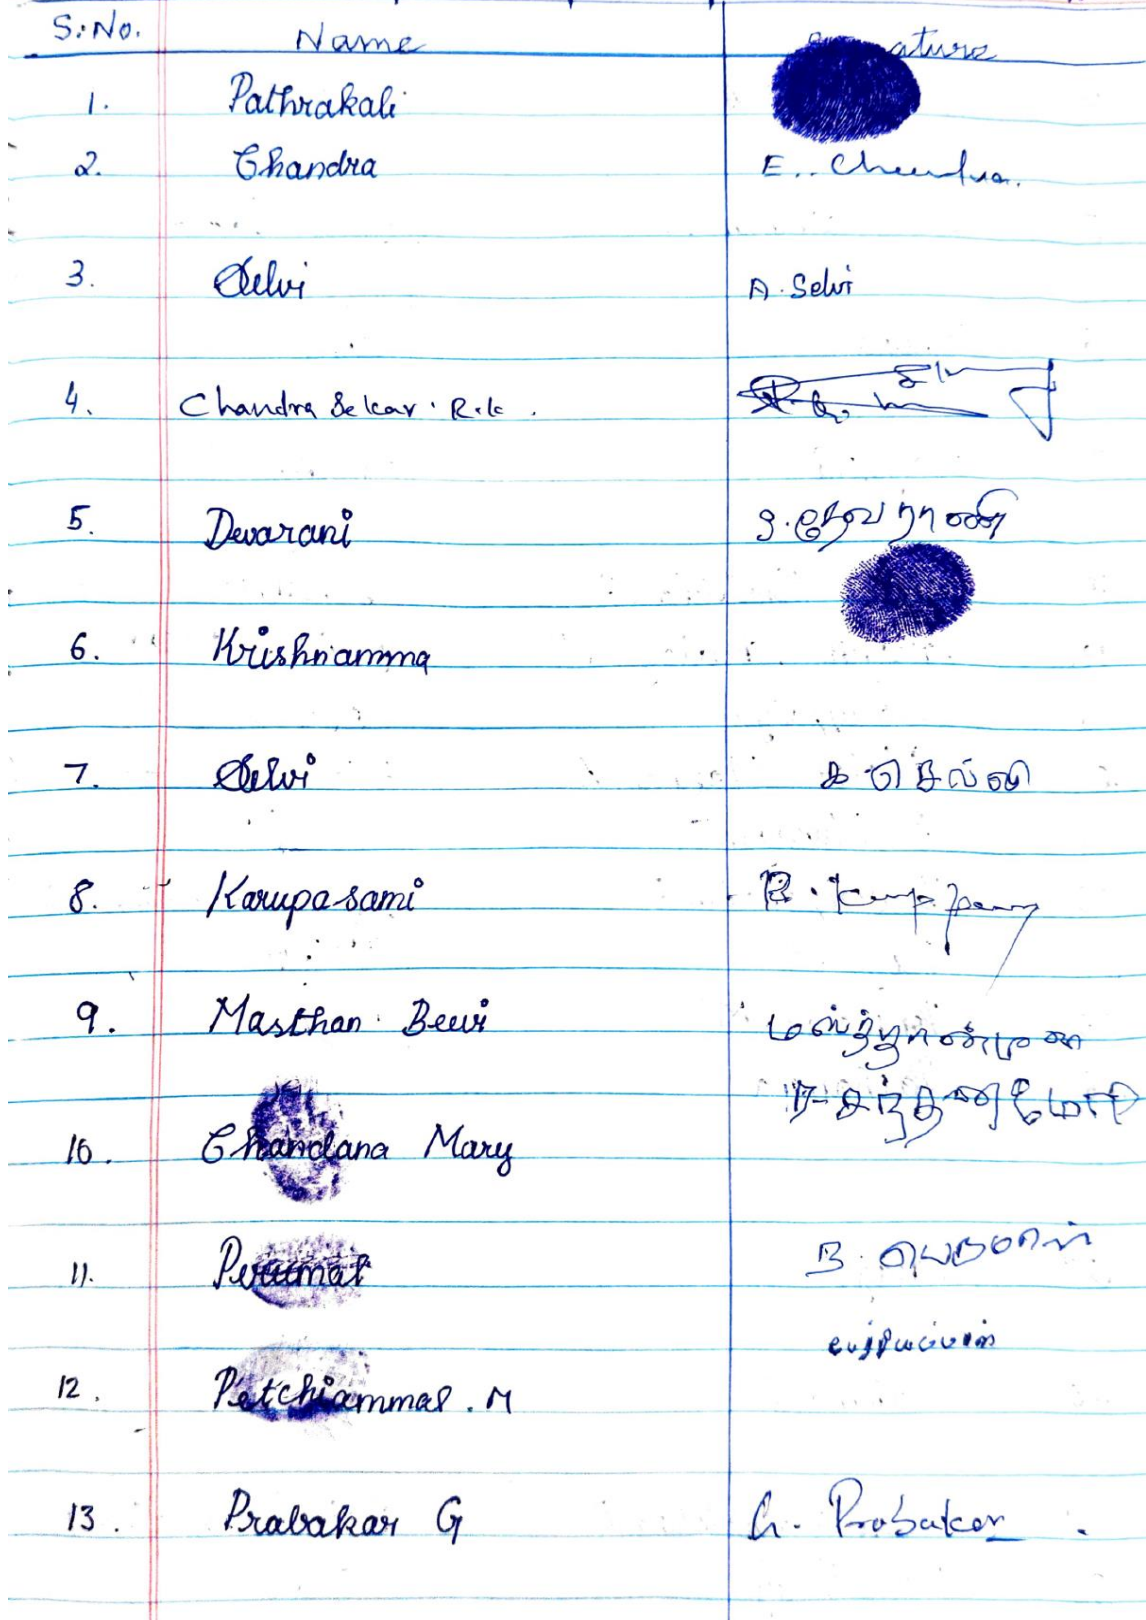 S.No. Name
1. Pathrakali
2. Chandra E. Chandra.
3. Selvi A. Selvi
4. Chandra Sekar. R.K.
5. Devarani தேவராணி
6. Krishnamma
7. Selvi க செல்வி
8. Karupasami
9. Masthan Beevi
10. Chandana Mary
11. Perumal பெருமாள்
12. Petchiammal. M
13. Prabakar G G. Prabakar.